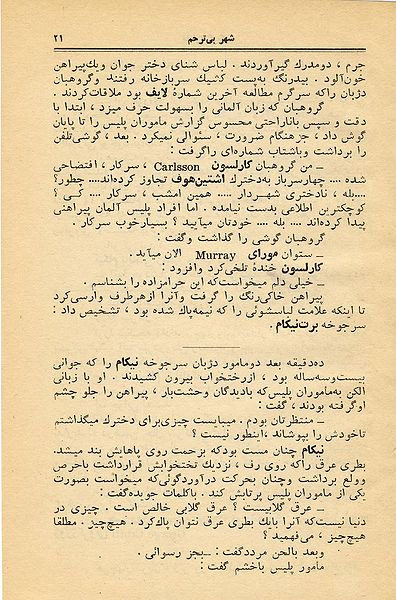 شهر بی‌ترحم ۲۱
جرم ، دومدرك گیرآوردند . لباس شنای دختر جوان ویك‌پیراهن
خون‌آلود . بیدرنگ به‌پست کشیك سربازخانه رفتند وگروهبان
دژبان راکه سرگرم مطالعه آخرین شمارهٔ لایف بود ملاقات‌کردند .
گروهبان که زبان آلمانی را بسهولت حرف میزد ، ابتدا با
دقت و سپس باناراحتی محسوس گزارش ماموران پلیس را تا پایان
گوش داد ، جزهنگام ضرورت ، سئوالی نمیکرد . بعد ، گوشی‌تلفن
را برداشت وباشتاب شماره‌ای راگرفت :
ــ من گروهبان کارلسون Carlsson ، سرکار ، افتضاحی
شده .... چهارسرباز به‌دخترك اشتین‌هوف تجاوز کرده‌اند.... چطور؟
....بله ، نادختری شهـردار ..... همین امشب ، سرکار .... کـی ؟
کوچکترین اطلاعی بدست نیامده . اما افراد پلیس آلمان پیراهنی
پیدا کرده‌اند .... بله .... خودتان میآیید ؟ بسیارخوب سرکار .
گروهبان گوشی را گذاشت وگفت :
ــ ستوان مورای Murray الان میآید .
کارلسون خندهٔ تلخی‌کرد وافزود :
ــ خیلی دلم میخواست‌که این حرامزاده را بشناسم .
پیراهن خاکی‌رنگ را گرفت وآنرا ازهرطرف وارسی‌کرد
تا اینکه علامت لباسشوئی را که نیمه‌پاك شده بود ، تشخیص داد :
سرجوخه برت‌نیکام .
ده‌دقیقه بعد دومامور دژبان سرجوخه نیکام را که جوانی
بیست‌وسه‌ساله بود ، ازرختخواب بیرون کشیدند . او با زبانی
الکن به‌ماموران پلیس‌که بادیدگان وحشت‌بار ، پیراهن را جلو چشم
اوگرفته بودند ، گفت :
ــ منتظرتان بودم . میبایست چیزی‌برای دخترك میگذاشتم
تاخودش را بپوشاند ،اینطور نیست ؟
نیکام چنان مست بودکه بزحمت روی پاهایش بند میشد.
بطری عرق راکه روی رف ، نزدیك تختخوابش قرارداشت باحرص
وولع برداشت وچنان بحرکت درآوردگوئی‌که میخواست بصورت
یکی از ماموران پلیس پرتابش کند . باکلمات جویده‌گفت :
ــ عرق گلابیست ؟ عرق گلابی خالص است . چیزی در
دنیا نیست‌که آنرا بایك بطری عرق نتوان پاك‌کرد . هیچ‌چیز . مطلقا
هیچ‌چیز ، می‌فهمید ؟
وبعد بالحن مرددگفت : ــبجز رسوائی .
مامور پلیس باخشم گفت :